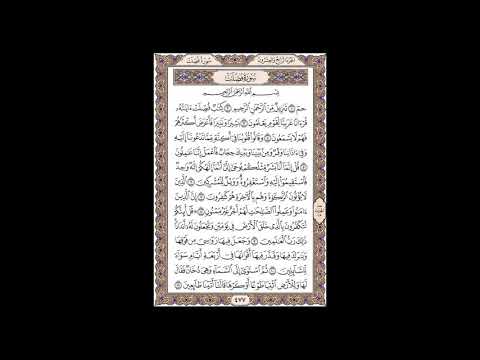 الجزء الرابع والعشرون
سورة فصلت
سُورَةُ فُصِّلَتْ
بِسْمِ ٱللَّهِ ٱلرَّحْمَٰنِ ٱلرَّحِيمِ
حمٓ ١ تَنزِيلٌ مِّنَ ٱلرَّحْمَٰنِ ٱلرَّحِيمِ ٢ كِتَٰبٌ فُصِّلَتْ ءَايَٰتُهُۥ
قُرْءَانًا عَرَبِيًّا لِّقَوْمٍ يَعْلَمُونَ ٣ بَشِيرًا وَنَذِيرًا فَأَعْرَضَ أَكْثَرُهُمْ
فَهُمْ لَا يَسْمَعُونَ ٤ وَقَالُوا۟ قُلُوبُنَا فِىٓ أَكِنَّةٍ مِّمَّا تَدْعُونَآ إِلَيْهِ
وَفِىٓ ءَاذَانِنَا وَقْرٌ وَمِنۢ بَيْنِنَا وَبَيْنِكَ حِجَابٌ فَٱعْمَلْ إِنَّنَا عَٰمِلُونَ
٥ قُلْ إِنَّمَآ أَنَا۠ بَشَرٌ مِّثْلُكُمْ يُوحَىٰٓ إِلَىَّ أَنَّمَآ إِلَٰهُكُمْ إِلَٰهٌ وَٰحِدٌ
فَٱسْتَقِيمُوٓا۟ إِلَيْهِ وَٱسْتَغْفِرُوهُ وَوَيْلٌ لِّلْمُشْرِكِينَ ٦ ٱلَّذِينَ
لَا يُؤْتُونَ ٱلزَّكَوٰةَ وَهُم بِٱلْءَاخِرَةِ هُمْ كَٰفِرُونَ ٧ إِنَّ ٱلَّذِينَ
ءَامَنُوا۟ وَعَمِلُوا۟ ٱلصَّٰلِحَٰتِ لَهُمْ أَجْرٌ غَيْرُ مَمْنُونٍ ٨ قُلْ أَئِنَّكُمْ
لَتَكْفُرُونَ بِٱلَّذِى خَلَقَ ٱلْأَرْضَ فِى يَوْمَيْنِ وَتَجْعَلُونَ لَهُۥٓ أَندَادًا
ذَٰلِكَ رَبُّ ٱلْعَٰلَمِينَ ٩ وَجَعَلَ فِيهَا رَوَٰسِىَ مِن فَوْقِهَا
وَبَٰرَكَ فِيهَا وَقَدَّرَ فِيهَآ أَقْوَٰتَهَا فِىٓ أَرْبَعَةِ أَيَّامٍ سَوَآءً
لِّلسَّآئِلِينَ ١٠ ثُمَّ ٱسْتَوَىٰٓ إِلَى ٱلسَّمَآءِ وَهِىَ دُخَانٌ فَقَالَ
لَهَا وَلِلْأَرْضِ ٱئْتِيَا طَوْعًا أَوْ كَرْهًا قَالَتَآ أَتَيْنَا طَآئِعِينَ ١١
٤٧٧